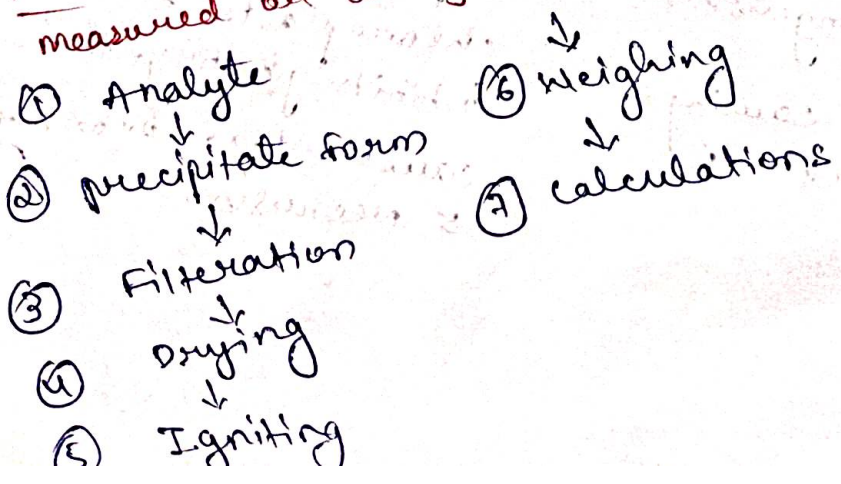 measured
① Analyte
↓
② precipitate form
↓
③ Filteration
↓
④ Drying
↓
⑤ Igniting
↓
⑥ Weighing
↓
⑦ calculations